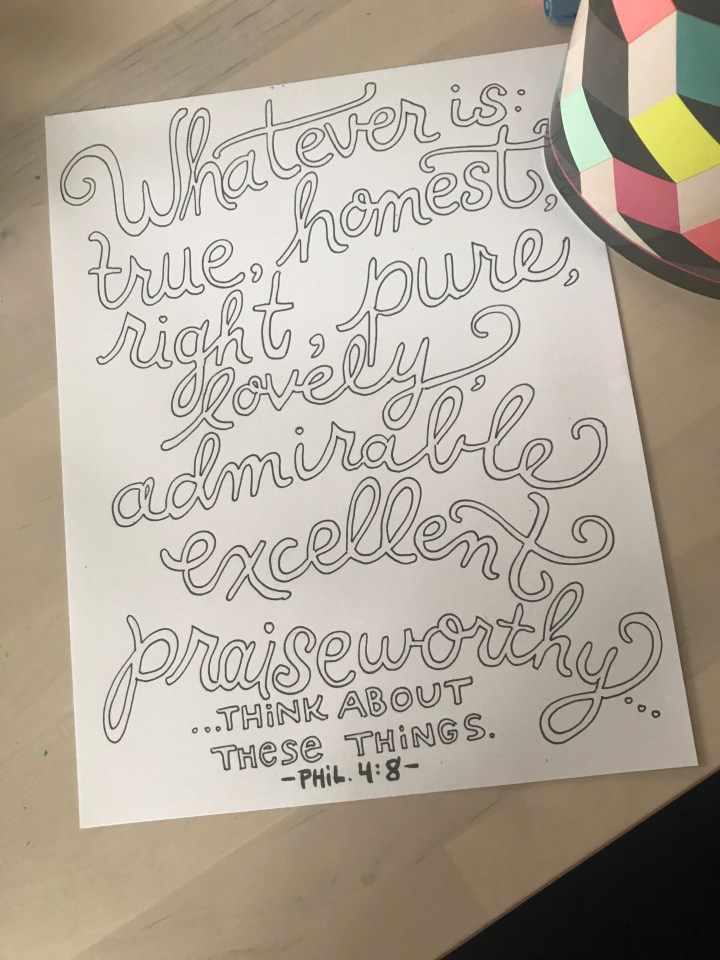 Whatever is:
true, honest,
right, pure,
lovely,
admirable
excellent
praiseworthy...
...THiNK ABOUT
THESE THiNGS.
-PHiL. 4:8-